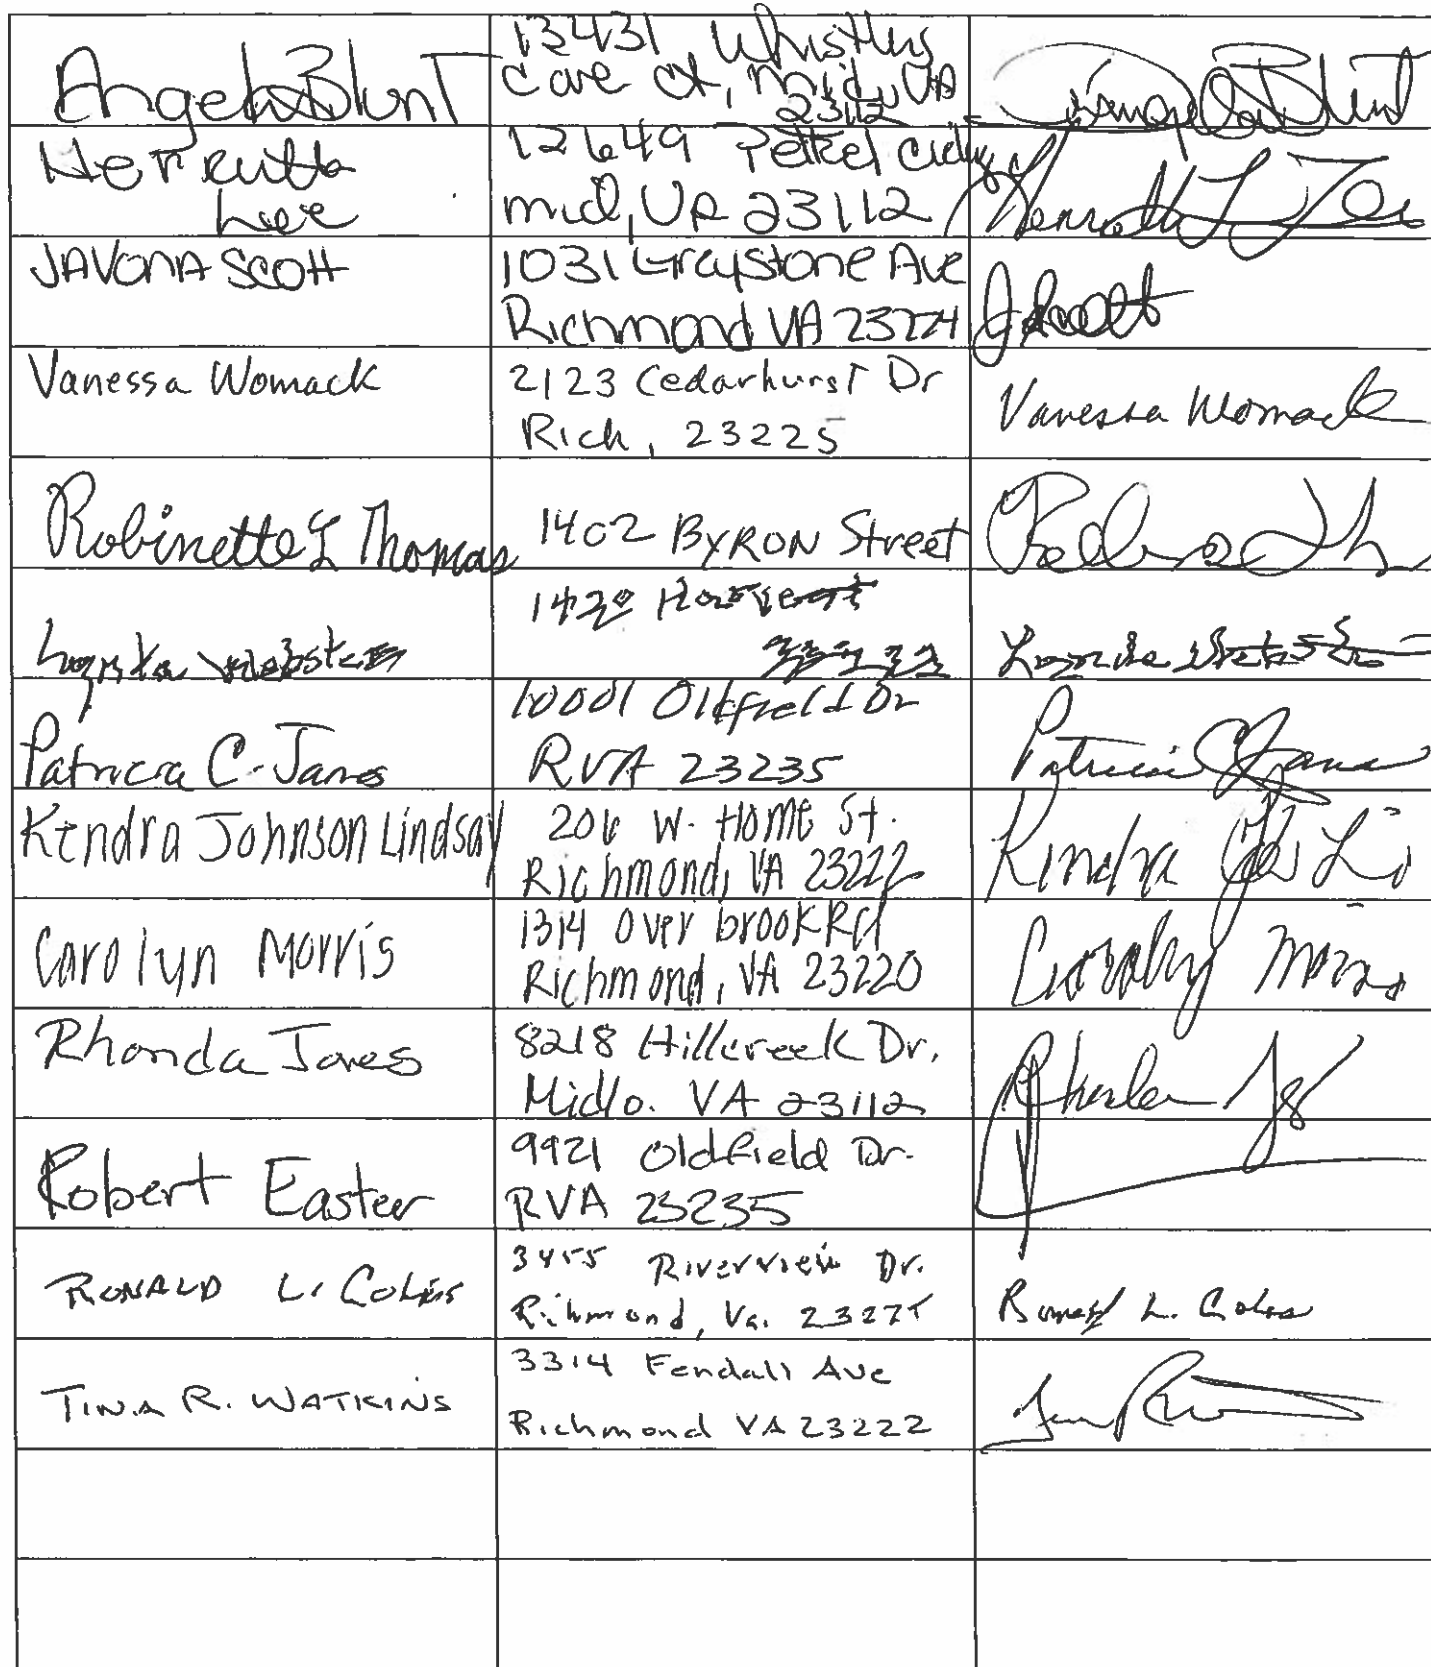 Angela Blunt
13431 Whistlers
Cove Ct, Mid, VA
23112
Angela Blunt
Lee
12649 Petrel
mid, VA 23112
JAVONA SCOTT
1031 Graystone Ave
Richmond VA 23224
J Scott
Vanessa Womack
2123 Cedarhurst Dr
Rich, 23225
Vanessa Womack
Robinette L Thomas
1402 BYRON Street
Webster
1420
Patricia C. Jones
10001 Oldfield Dr
RVA 23235
Patricia C Jones
Kendra Johnson Lindsay
206 W. Home St.
Richmond, VA 23222
Kendra
Carolyn Morris
1314 Overbrook Rd
Richmond, VA 23220
Morris
Rhonda Jones
8218 Hillcreek Dr.
Midlo. VA 23112
Robert Easter
9921 Oldfield Dr.
RVA 23235
RONALD L. COLES
3455 Riverview Dr.
Richmond, Va.
L. Coles
TINA R. WATKINS
3314 Fendall Ave
Richmond VA 23222